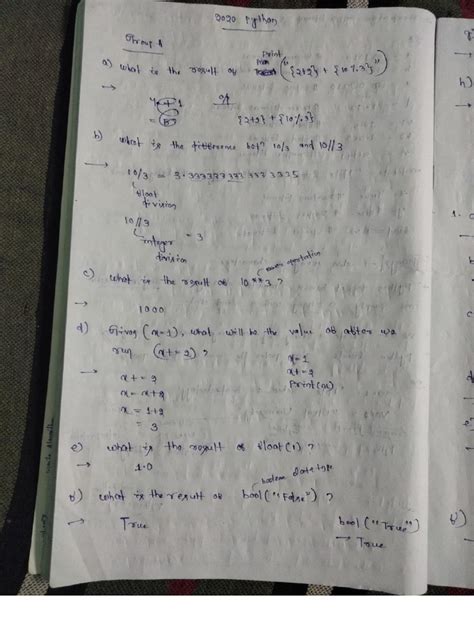 2020 Python
Group A
a) What is the result of print ("{2+2} + {10%3}")
→ 4 + 1 or
= 5 {2+2} + {10%3}
b) What is the difference bet? 10/3 and 10//3
→ 10/3 =
float
division
10//3 = 3
integer
division
c) What is the result of 10**3?
→ 1000
d) Given (x=1), what will be the value of after we
run (x+=2)?
x=1
→ x+=2
x+=2
x=x+2
print(x).
x=1+2
=3
e) What is the result of float(1)?
→ 1.0
boolean data type
f) What is the result of bool("False")?
→ True
bool("True")
→ True